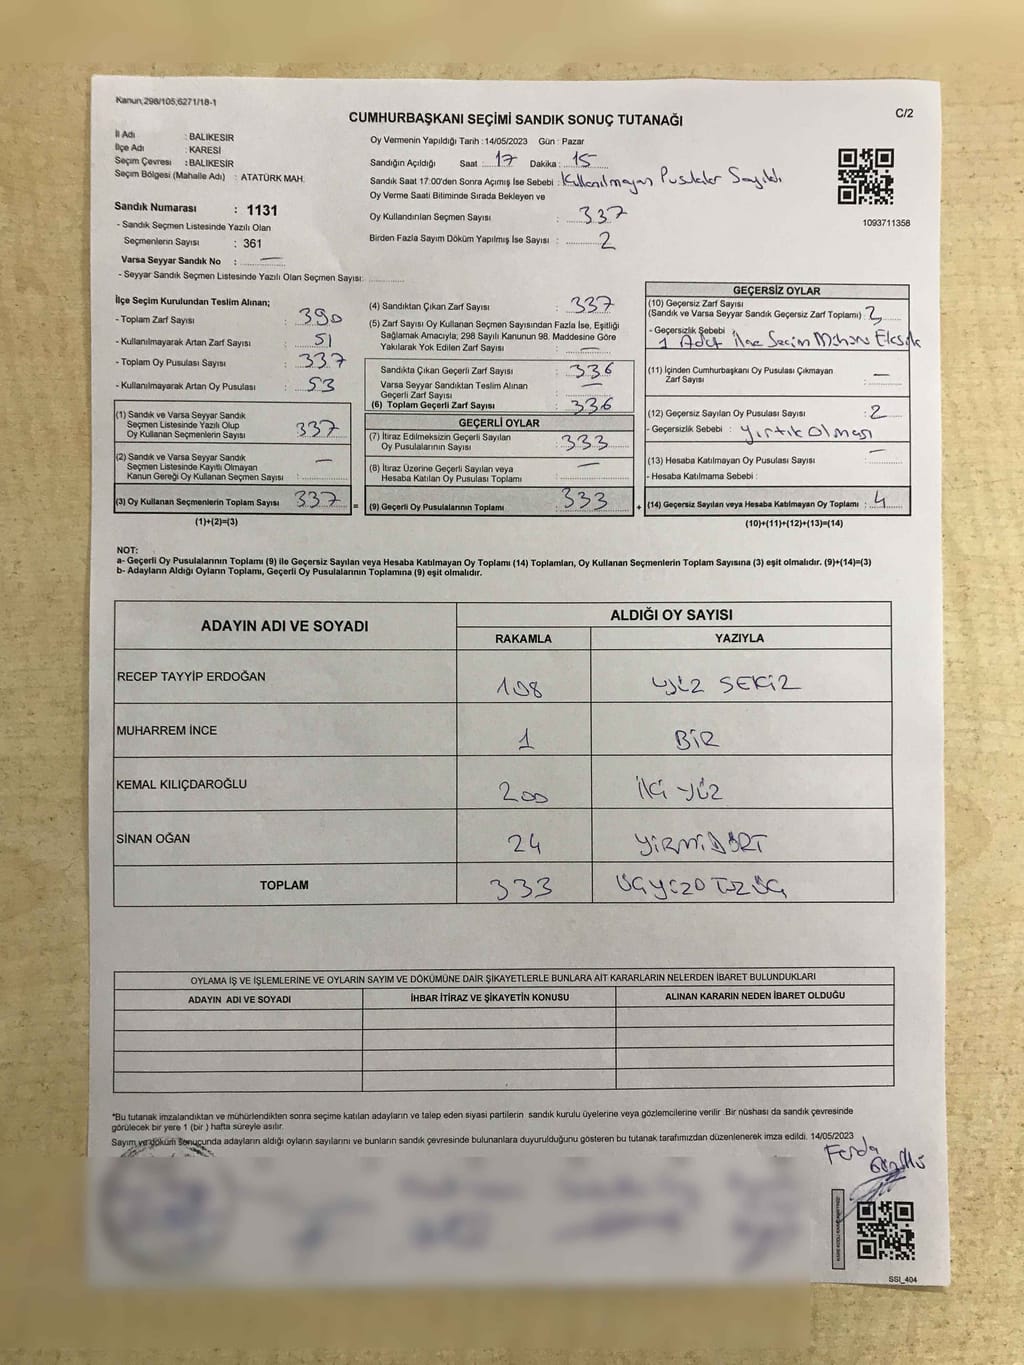 Kanun;298/105,6271/18-1
C/2
CUMHURBAŞKANI SEÇİMİ SANDIK SONUÇ TUTANAĞI
İl Adı : BALIKESİR
İlçe Adı : KARESİ
Seçim Çevresi : BALIKESİR
Seçim Bölgesi (Mahalle Adı) : ATATÜRK MAH.
Sandık Numarası : 1131
- Sandık Seçmen Listesinde Yazılı Olan
Seçmenlerin Sayısı : 361
Varsa Seyyar Sandık No : —
- Seyyar Sandık Seçmen Listesinde Yazılı Olan Seçmen Sayısı:
Oy Vermenin Yapıldığı Tarih :14/05/2023 Gün : Pazar
Sandığın Açıldığı Saat : 17 Dakika : 15
Sandık Saat 17:00'den Sonra Açımış İse Sebebi : Kullanılmayan Pusulalar Sayıldı
Oy Verme Saati Bitiminde Sırada Bekleyen ve
Oy Kullandırılan Seçmen Sayısı : 337
Birden Fazla Sayım Döküm Yapılmış İse Sayısı : 2
1093711358
İlçe Seçim Kurulundan Teslim Alınan;
- Toplam Zarf Sayısı : 390
- Kullanılmayarak Artan Zarf Sayısı : 51
- Toplam Oy Pusulası Sayısı : 337
- Kullanılmayarak Artan Oy Pusulası : 53
(1) Sandık ve Varsa Seyyar Sandık
Seçmen Listesinde Yazılı Olup
Oy Kullanan Seçmenlerin Sayısı 337
(2) Sandık ve Varsa Seyyar Sandık
Seçmen Listesinde Kayıtlı Olmayan
Kanun Gereği Oy Kullanan Seçmen Sayısı : —
(3) Oy Kullanan Seçmenlerin Toplam Sayısı 337 =
(1)+(2)=(3)
(4) Sandıktan Çıkan Zarf Sayısı : 337
(5) Zarf Sayısı Oy Kullanan Seçmen Sayısından Fazla İse, Eşitliği
Sağlamak Amacıyla; 298 Sayılı Kanunun 98. Maddesine Göre
Yakılarak Yok Edilen Zarf Sayısı : —
Sandıkta Çıkan Geçerli Zarf Sayısı : 336
Varsa Seyyar Sandıktan Teslim Alınan
Geçerli Zarf Sayısı : —
(6) Toplam Geçerli Zarf Sayısı : 336
GEÇERLİ OYLAR
(7) İtiraz Edilmeksizin Geçerli Sayılan
Oy Pusulalarının Sayısı : 333
(8) İtiraz Üzerine Geçerli Sayılan veya
Hesaba Katılan Oy Pusulası Toplamı : —
(9) Geçerli Oy Pusulalarının Toplamı : 333 +
GEÇERSİZ OYLAR
(10) Geçersiz Zarf Sayısı
(Sandık ve Varsa Seyyar Sandık Geçersiz Zarf Toplamı) :
- Geçersizlik Sebebi :
1 Adet İlçe Seçim Mührü Eksik
(11) İçinden Cumhurbaşkanı Oy Pusulası Çıkmayan
Zarf Sayısı : —
(12) Geçersiz Sayılan Oy Pusulası Sayısı : 2
- Geçersizlik Sebebi : Yırtık Olması
(13) Hesaba Katılmayan Oy Pusulası Sayısı : —
- Hesaba Katılmama Sebebi :
(14) Geçersiz Sayılan veya Hesaba Katılmayan Oy Toplamı : 4
(10)+(11)+(12)+(13)=(14)
NOT:
a- Geçerli Oy Pusulalarının Toplamı (9) ile Geçersiz Sayılan veya Hesaba Katılmayan Oy Toplamı (14) Toplamları, Oy Kullanan Seçmenlerin Toplam Sayısına (3) eşit olmalıdır. (9)+(14)=(3)
b- Adayların Aldığı Oyların Toplamı, Geçerli Oy Pusulalarının Toplamına (9) eşit olmalıdır.
ADAYIN ADI VE SOYADI
ALDIĞI OY SAYISI
RAKAMLA YAZIYLA
RECEP TAYYİP ERDOĞAN 108 YÜZ SEKİZ
MUHARREM İNCE 1 BİR
KEMAL KILIÇDAROĞLU 200 İKİ YÜZ
SİNAN OĞAN 24 YİRMİDÖRT
TOPLAM 333 ÜÇYÜZOTUZÜÇ
OYLAMA İŞ VE İŞLEMLERİNE VE OYLARIN SAYIM VE DÖKÜMÜNE DAİR ŞİKAYETLERLE BUNLARA AİT KARARLARIN NELERDEN İBARET BULUNDUKLARI
ADAYIN ADI VE SOYADI İHBAR İTİRAZ VE ŞİKAYETİN KONUSU ALINAN KARARIN NEDEN İBARET OLDUĞU
*Bu tutanak imzalandıktan ve mühürlendikten sonra seçime katılan adayların ve talep eden siyasi partilerin sandık kurulu üyelerine veya gözlemcilerine verilir .Bir nüshası da sandık çevresinde
görülecek bir yere 1 (bir ) hafta süreyle asılır.
Sayım ve döküm sonucunda adayların aldığı oyların sayılarını ve bunların sandık çevresinde bulunanlara duyurulduğunu gösteren bu tutanak tarafımızdan düzenlenerek imza edildi. 14/05/2023
Ferda
SSI_404